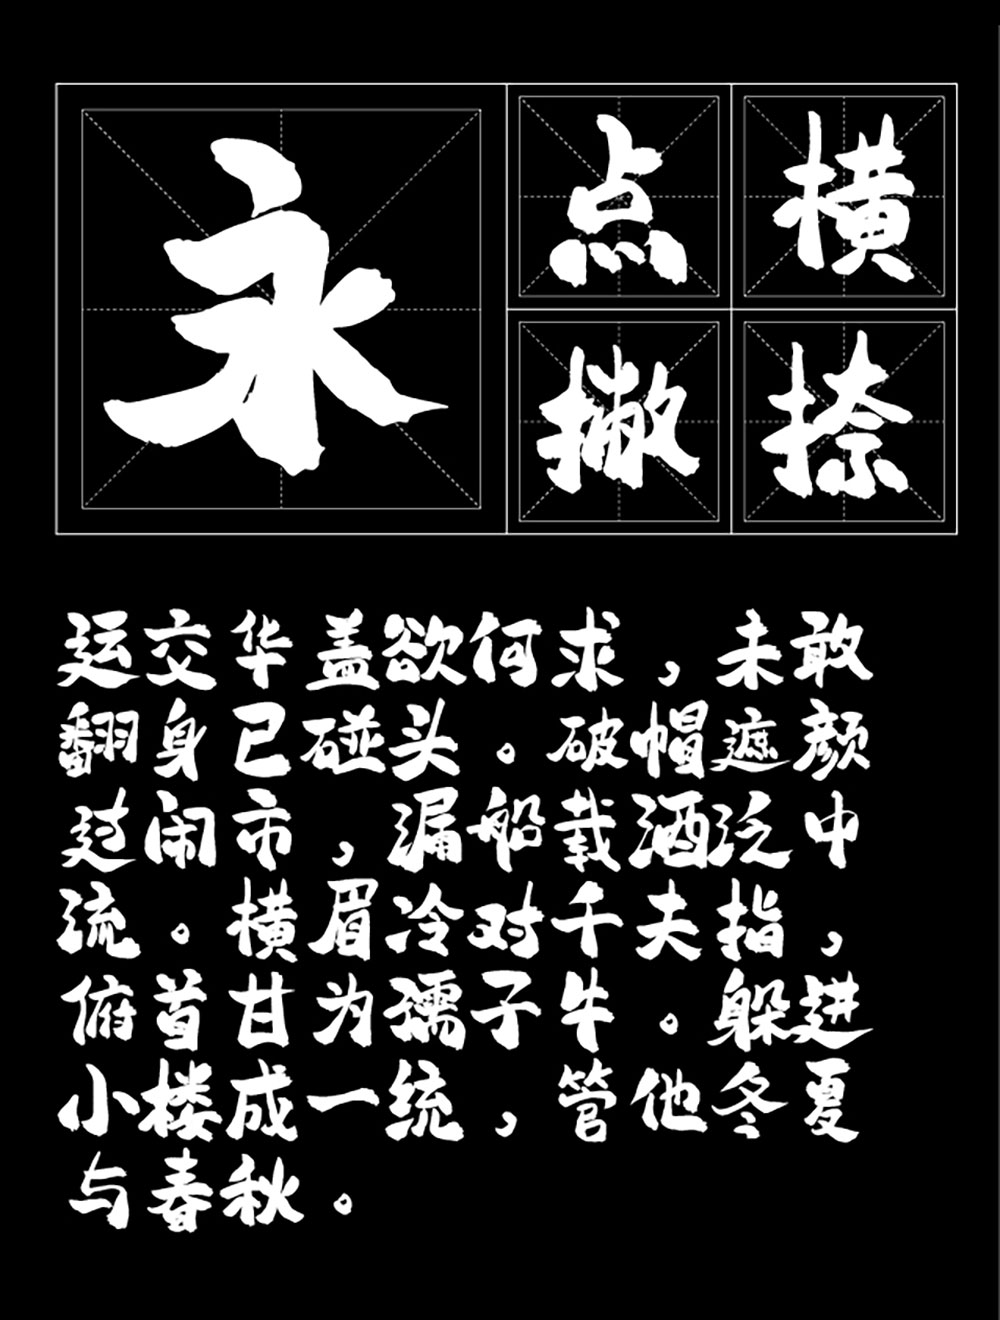 永
点横
撇捺
运交华盖欲何求，未敢
翻身已碰头。破帽遮颜
过闹市，漏船载酒泛中
流。横眉冷对千夫指，
俯首甘为孺子牛。躲进
小楼成一统，管他冬夏
与春秋。